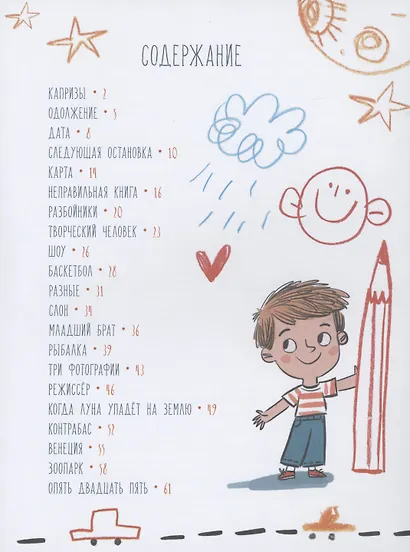 СОДЕРЖАНИЕ
КАПРИЗЫ • 2
ОДОЛЖЕНИЕ • 5
ДАТА • 8
СЛЕДУЮЩАЯ ОСТАНОВКА • 10
КАРТА • 14
НЕПРАВИЛЬНАЯ КНИГА • 16
РАЗБОЙНИКИ • 20
ТВОРЧЕСКИЙ ЧЕЛОВЕК • 23
ШОУ • 26
БАСКЕТБОЛ • 28
РАЗНЫЕ • 31
СЛОН • 34
МЛАДШИЙ БРАТ • 36
РЫБАЛКА • 39
ТРИ ФОТОГРАФИИ • 43
РЕЖИССЁР • 46
КОГДА ЛУНА УПАДЁТ НА ЗЕМЛЮ • 49
КОНТРАБАС • 52
ВЕНЕЦИЯ • 55
ЗООПАРК • 58
ОПЯТЬ ДВАДЦАТЬ ПЯТЬ • 61